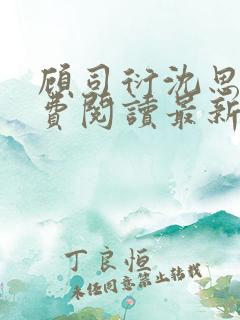 顾司衍沈思
费閱讀最新
丁良恒
未经同意禁止转载